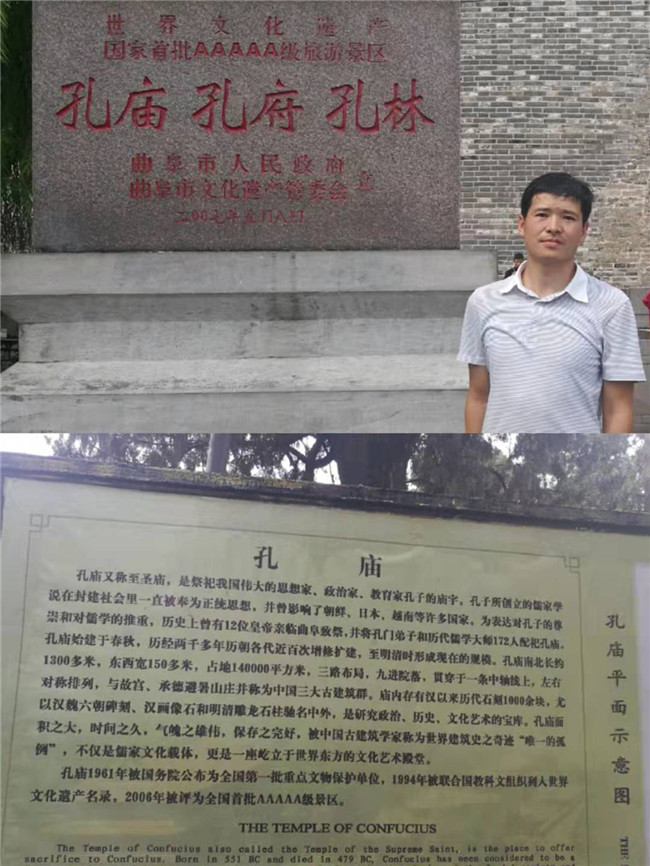 世界文化遗产
国家首批AAAAA级旅游景区
孔庙 孔府 孔林
曲阜市人民政府
曲阜市文化遗产管委会 立
二〇〇七年五月八日
孔庙
孔庙又称至圣庙，是祭祀我国伟大的思想家、政治家、教育家孔子的庙宇。孔子所创立的儒家学
说在封建社会里一直被奉为正统思想，并曾影响了朝鲜、日本、越南等许多国家。为表达对孔子的尊
崇和对儒学的推重，历史上曾有12位皇帝亲临曲阜致祭，并将孔门弟子和历代儒学大师172人配祀孔庙。
孔庙始建于春秋，历经两千多年历朝各代近百次增修扩建，至明清时形成现在的规模。孔庙南北长约
1300多米，东西宽150多米，占地140000平方米，三路布局，九进院落，贯穿于一条中轴线上，左右
对称排列，与故宫、承德避暑山庄并称为中国三大古建筑群。庙内存有仅以来历代石刻1000余块，尤
以汉魏六朝碑刻、汉画像石和明清雕龙石柱驰名中外，是研究政治、历史、文化艺术的宝库。孔庙面
积之大，时间之久，气魄之雄伟，保存之完好，被中国古建筑学家称为世界建筑史之奇迹“唯一的孤
例”，不仅是儒家文化载体，更是一座屹立于世界东方的文化艺术殿堂。
孔庙1961年被国务院公布为全国第一批重点文物保护单位，1994年被联合国教科文组织列入世界
文化遗产名录，2006年被评为全国首批AAAAA级景区。
THE TEMPLE OF CONFUCIUS
The Temple of Confucius also called the Temple of the Supreme Saint, is the place to offer
sacrifice to Confucius. Born in 551 BC and died in 479 BC, Confucius has been considered to be
孔庙平面示意图
THE